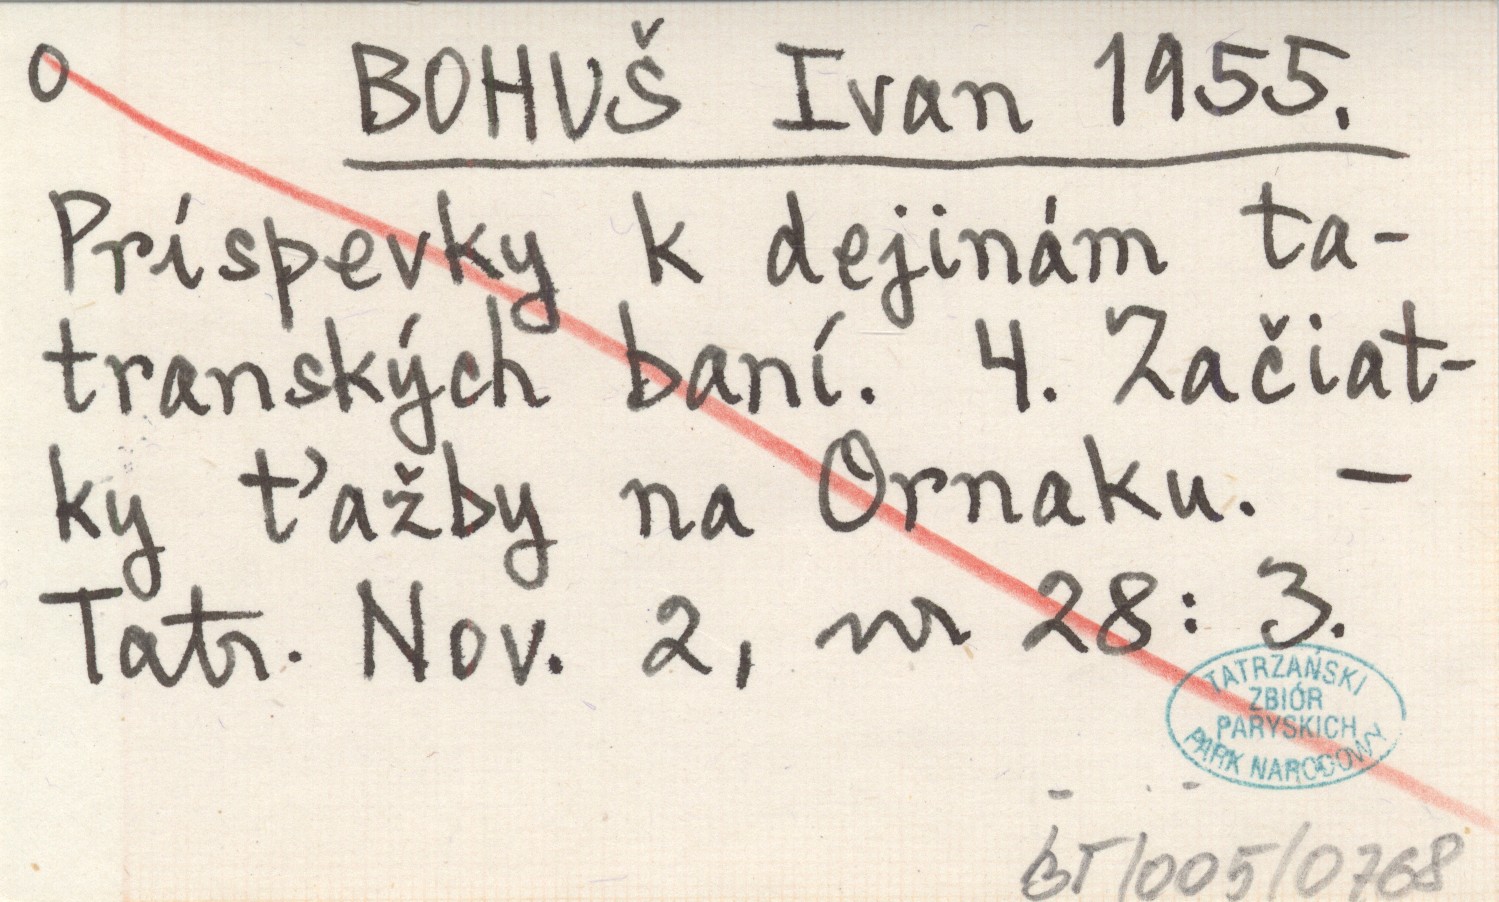 O BOHUŠ Ivan 1955.
Príspevky k dejinám ta-
tranských baní. 4. Začiat-
ky ťažby na Ornaku. –
Tatr. Nov. 2, nr 28: 3.
TATRZAŃSKI
ZBIÓR
PARYSKICH
PARK NARODOWY
BT/005/0768